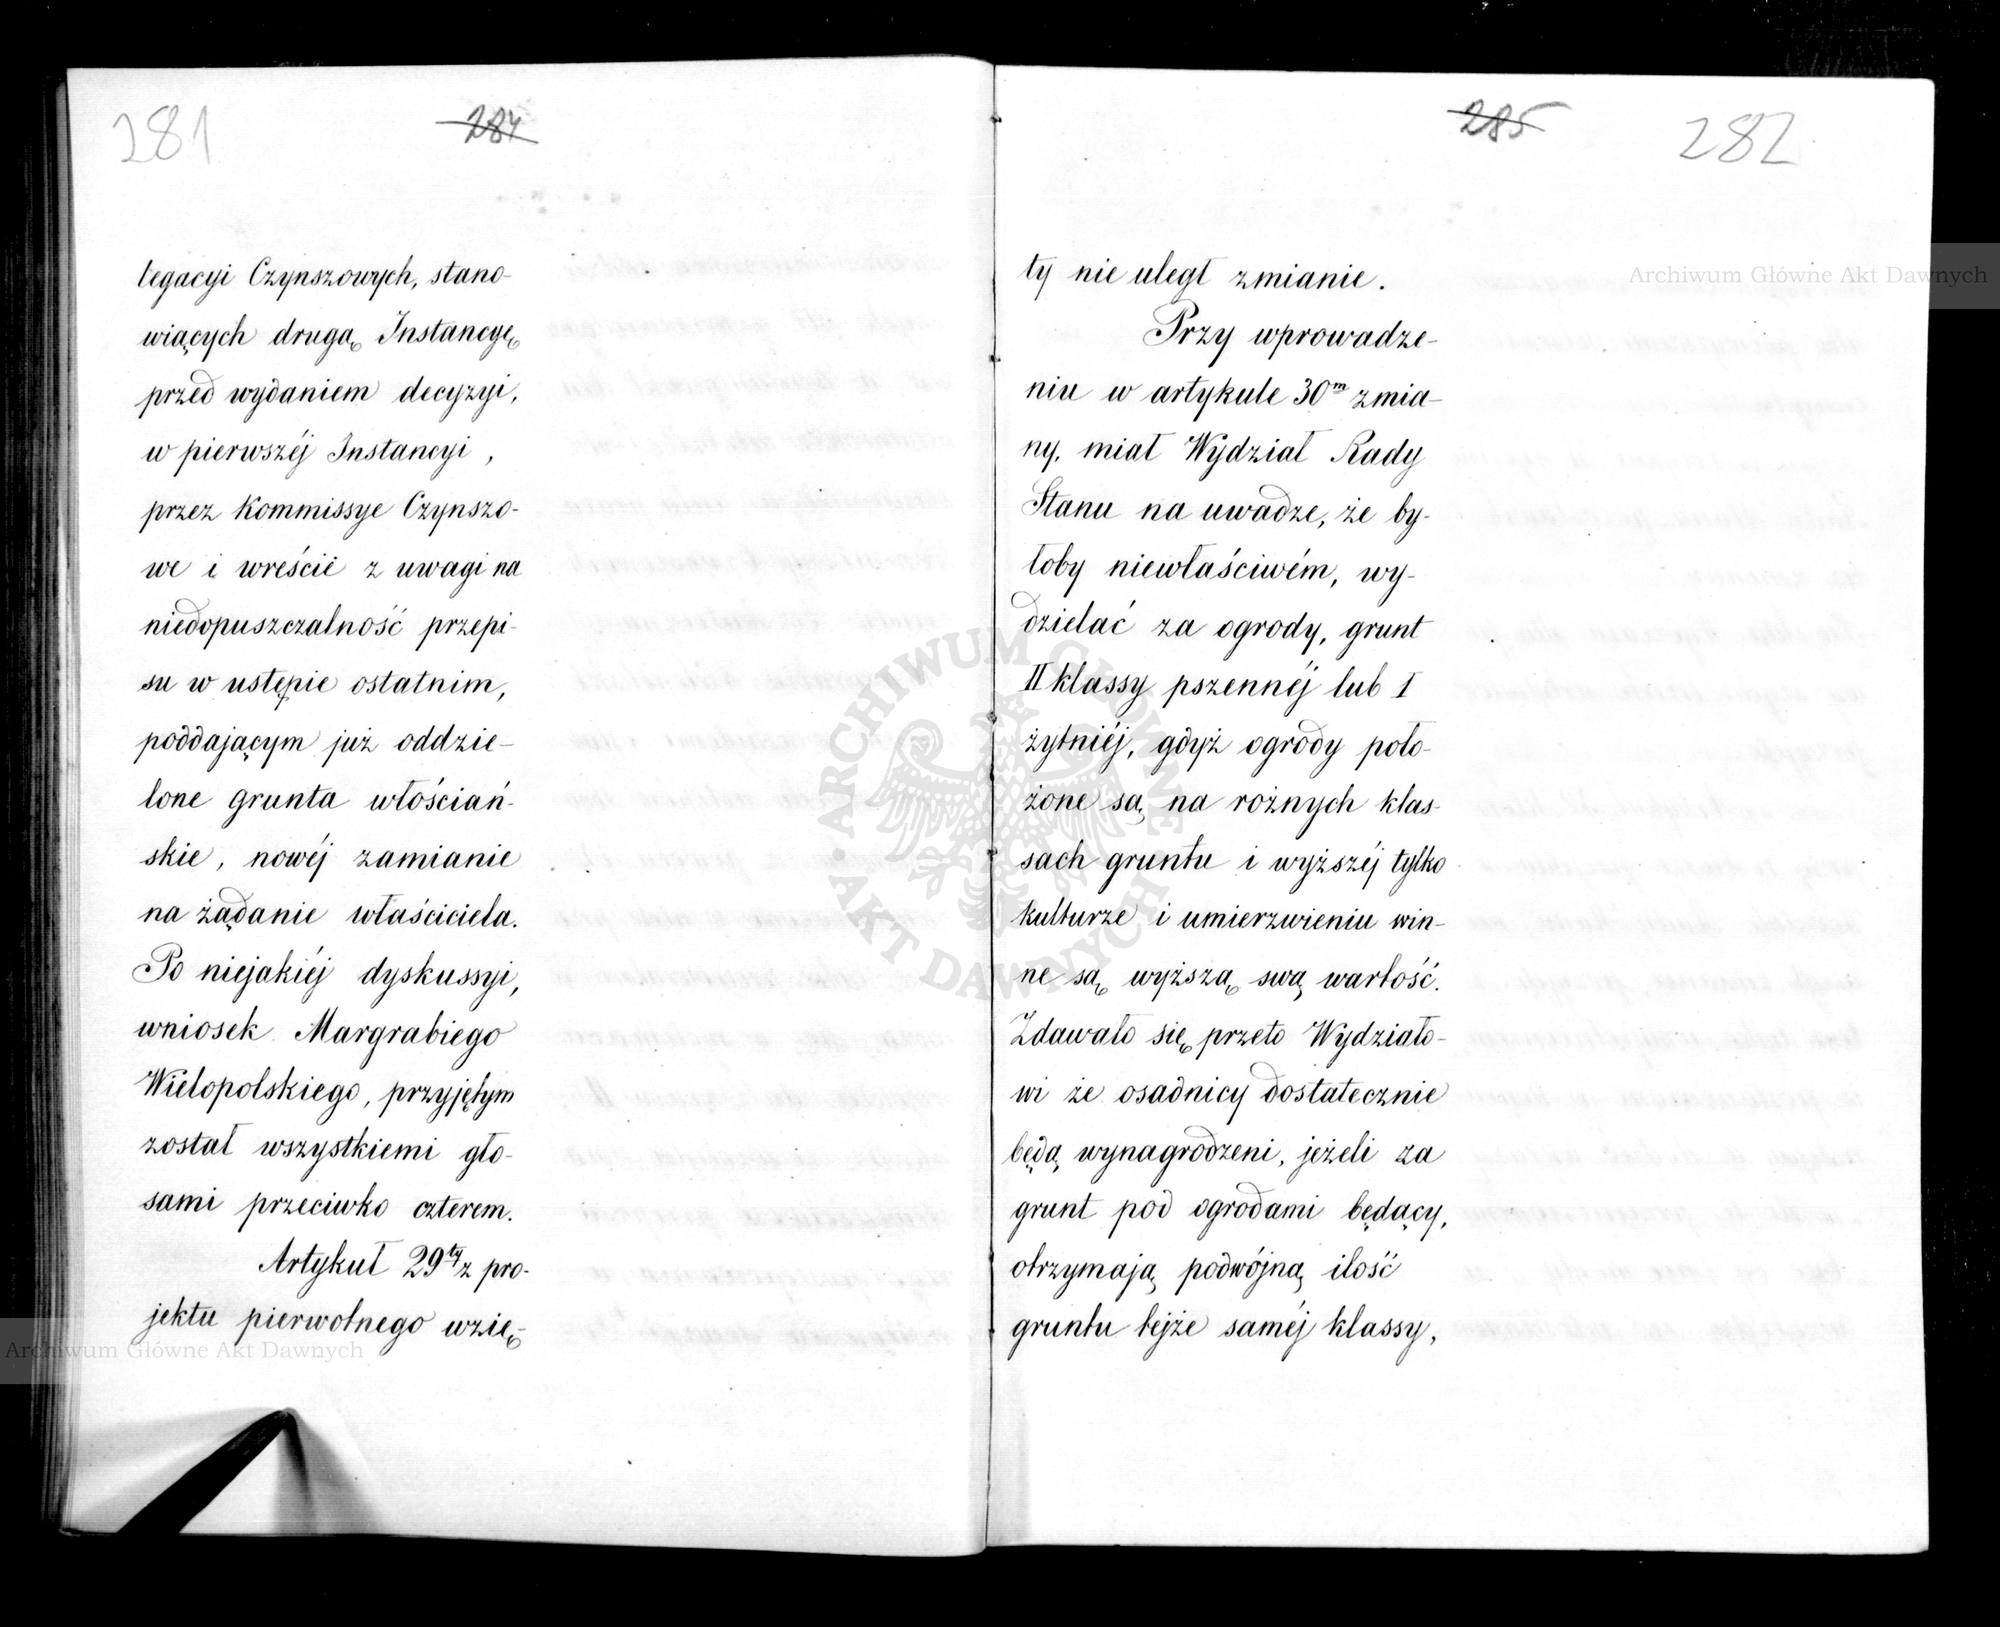 281
284
legacyi Czynszowych, stano-
wiących drugą Instancyę
przed wydaniem decyzyi,
w pierwszéj Instancyi,
przez Kommissye Czynszo-
we i wreście z uwagi na
niedopuszczalność przepi-
su w ustępie ostatnim,
poddającym już oddzie-
lone grunta włościań-
skie, nowéj zamianie
na żądanie właściciela.
Po niejakiéj dyskussyi,
wniosek Margrabiego
Wielopolskiego, przyjętym
został wszystkiemi gło-
sami przeciwko czterem.
Artykuł 29ty z pro-
jektu pierwotnego wzię-
285
282
ty nie uległ zmianie.
Przy wprowadze-
niu w artykule 30m zmia-
ny, miał Wydział Rady
Stanu na uwadze, że by-
łoby niewłaściwém, wy-
dzielać za ogrody, grunt
II klassy pszennéj lub I
żytniéj, gdyż ogrody poło-
żone są na rożnych klas-
sach gruntu i wyższéj tylko
kulturze i umierzwieniu win-
ne są wyższą swą wartość.
Zdawało się przeto Wydziało-
wi że osadnicy dostatecznie
będą wynagrodzeni, jeżeli za
grunt pod ogrodami będący,
otrzymają podwójną ilość
gruntu tejże saméj klassy,
Archiwum Główne Akt Dawnych
Archiwum Główne Akt Dawnych
ARCHIWUM GŁÓWNE
AKT DAWNYCH